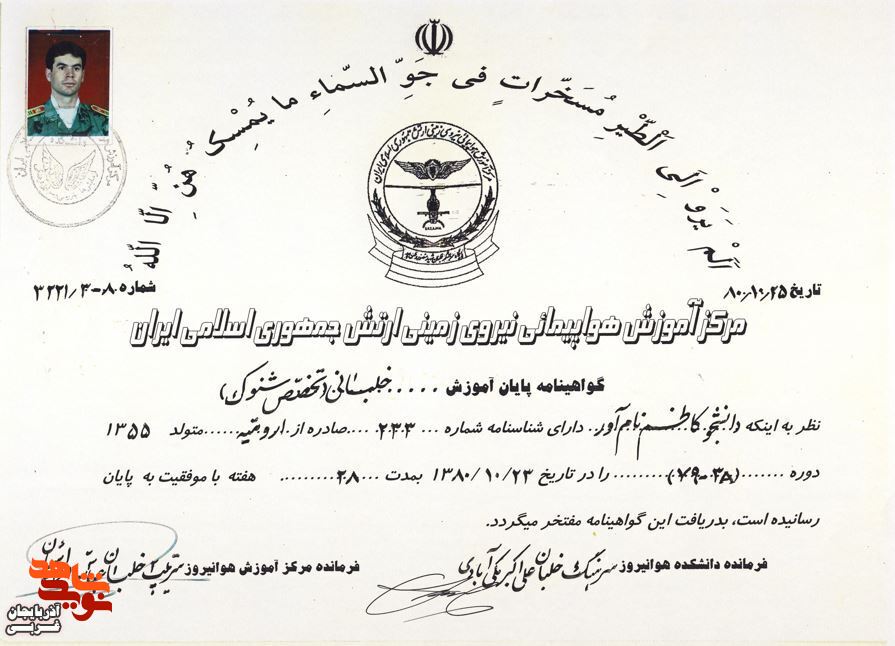 اَلَمْ يَرَوْا اِلَى الْطَّيْرِ مُسَخَّراتٍ فى جَوِّ السَّماءِ ما يُمْسِكُهُنَّ اِلَّا اللّهُ
تاریخ ۸۰/۱۰/۲۵
شماره ۸۰-۳-۳۲۲۱/
مرکز آموزش هواپیمائی نیروی زمینی ارتش جمهوری اسلامی ایران
گواهینامه پایان آموزش ..... خلبانی (تخصص شنوک)
نظر به اینکه دانشجو کاظم نام آور. دارای شناسنامه شماره ... ۲۳۳ .... صادره از ارومیه ...... متولد ۱۳۵۵
دوره ....... (۳۸-۷۹) ......... را در تاریخ ۱۳۸۰/۱۰/۲۳ بمدت .... ۲۸ ......... هفته با موفقیت به پایان
رسانیده است، بدریافت این گواهینامه مفتخر میگردد.
فرمانده دانشکده هوانیروز سرهنگ خلبان علی اکبر یکی آبادی
فرمانده مرکز آموزش هوانیروز سرتیپ ۲ خلبان
نوید شاهد
آذربایجان غربی